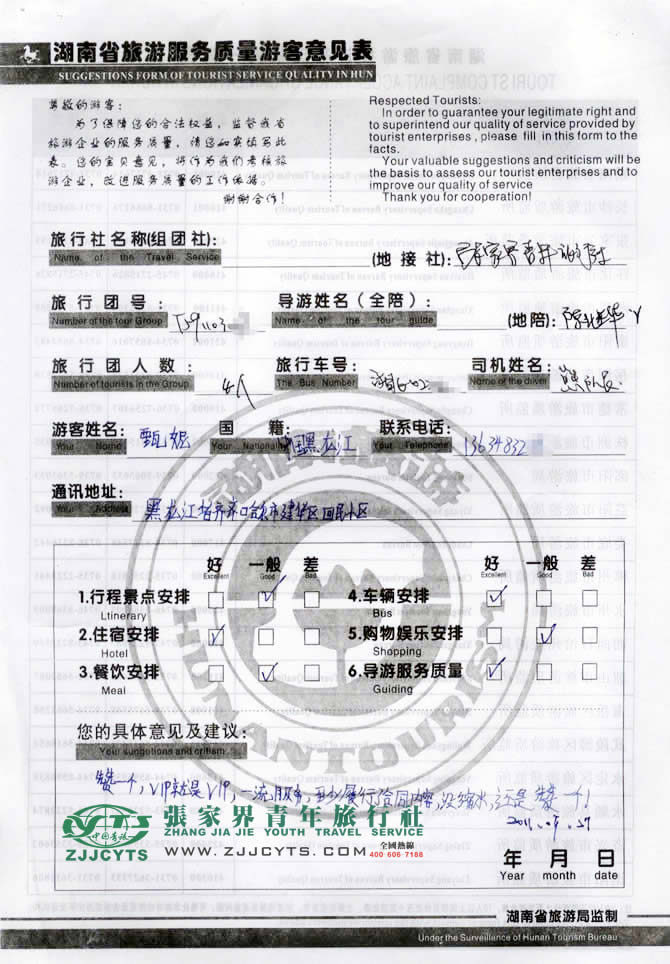 湖南省旅游服务质量游客意见表
SUGGESTIONS FORM OF TOURIST SERVICE QUALITY IN HUN
尊敬的游客:
为了保障您的合法权益,监督我省
旅游企业的服务质量,请您如实填写此
表。您的宝贝意见,将作为我们考核旅
游企业,改进服务质量的工作依据。
谢谢合作!
Respected Tourists:
In order to guarantee your legitimate right and
to superintend our quality of service provided by
tourist enterprises , please fill in this form to the
facts.
Your valuable suggestions and criticism will be
the basis to assess our tourist enterprises and to
improve our quality of service
Thank you for cooperation!
旅行社名称(组团社):
Name of the Travel Service
(地接社): 张家界青年旅行社
旅行团号:
Number of the tour Group
导游姓名(全陪):
Name of the tour guide
(地陪):
旅行团人数:
Number of tourists in the Group
4人
旅行车号:
The Bus Number
司机姓名:
Name of the driver
熊队长
游客姓名: 甄妮
Your Name
国籍: 中国黑龙江
Your Nationality
联系电话: 13634832
Your Telephone
通讯地址: 黑龙江省齐齐哈尔市建华区回民小区
Your Address
好 一般 差 好 一般 差
Excellent Good Bad Excellent Good Bad
1.行程景点安排 4.车辆安排
Ltinerary Bus
2.住宿安排 5.购物娱乐安排
Hotel Shopping
3.餐饮安排 6.导游服务质量
Meal Guiding
您的具体意见及建议:
Your suggetions and critism
赞一个,VIP就是VIP,一流服务,至少履行了合同内容,没缩水,还是赞一个!
張家界青年旅行社
ZHANG JIA JIE YOUTH TRAVEL SERVICE
ZJJCYTS
WWW.ZJJCYTS.COM 全國熱線
400-606-7188
年 月 日
Year month date
湖南省旅游局监制
Under the Surveillance of Hunan Tourism Bureau
HUNAN TOURISM